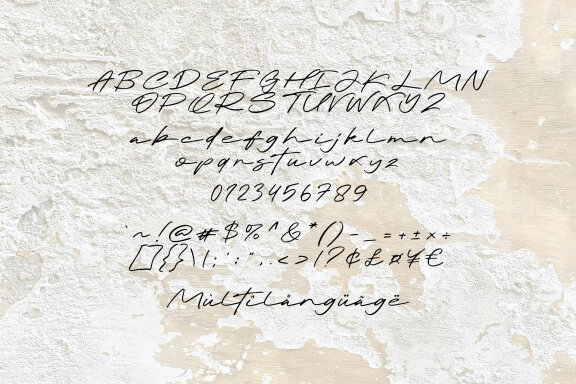 ABCDEFGHIJKLMN
OPQRSTUVWXYZ
abcdefghijklmn
opqrstuvwxyz
0123456789
`~!@#$%^&*()-_=+±×÷
[]{}\|;':",.<>/?¢£¤¥€
Múltílángüâgë